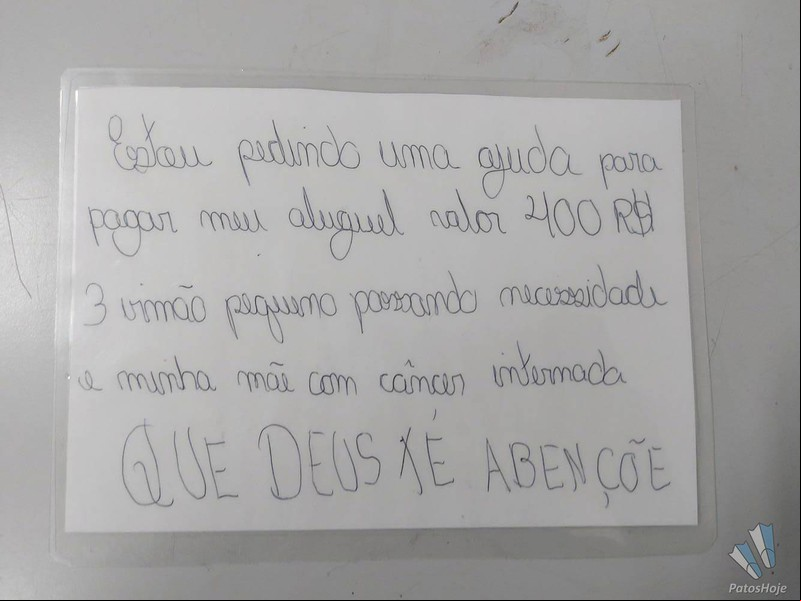 Estou pedindo uma ajuda para
pagar meu aluguel valor 400 R$
3 irmão pequeno passando necessidade
e minha mãe com câncer internada
QUE DEUS TÉ ABENÇÕE
PatosHoje